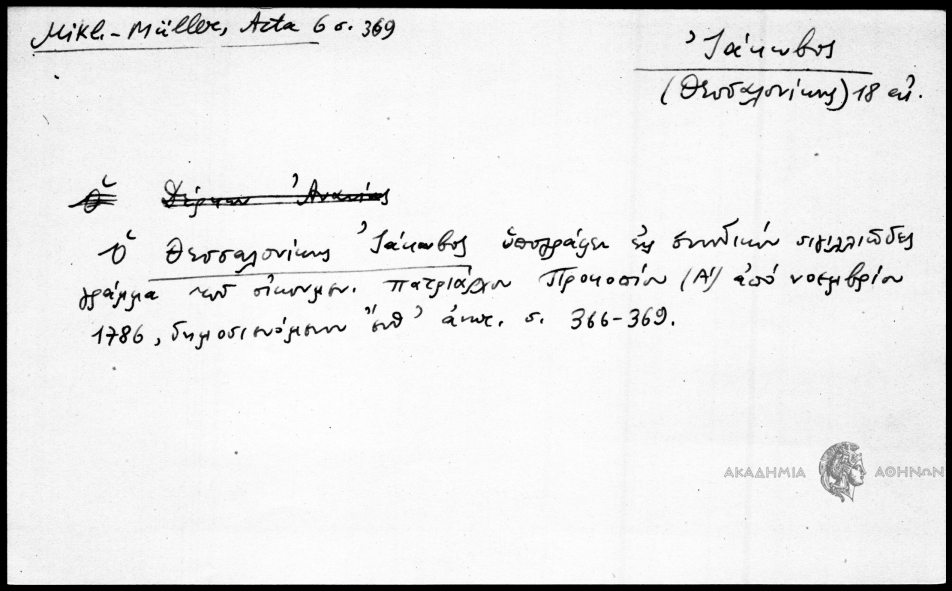 Mikl.-Müller, Acta 6 σ. 369
Ἰάκωβος
(Θεσσαλονίκης) 18 αἰ.
Ὁ Δέρκων Ἀνανίας
Ὁ Θεσσαλονίκης Ἰάκωβος ὑπογράφει εἰς συνοδικὸν σιγιλλιῶδες
γράμμα τοῦ οἰκουμεν. πατριάρχου Προκοπίου (Α΄) ἀπὸ νοεμβρίου
1786, δημοσιευόμενον ἔνθ' ἀνωτ. σ. 366-369.
ΑΚΑΔΗΜΙΑ ΑΘΗΝΩΝ